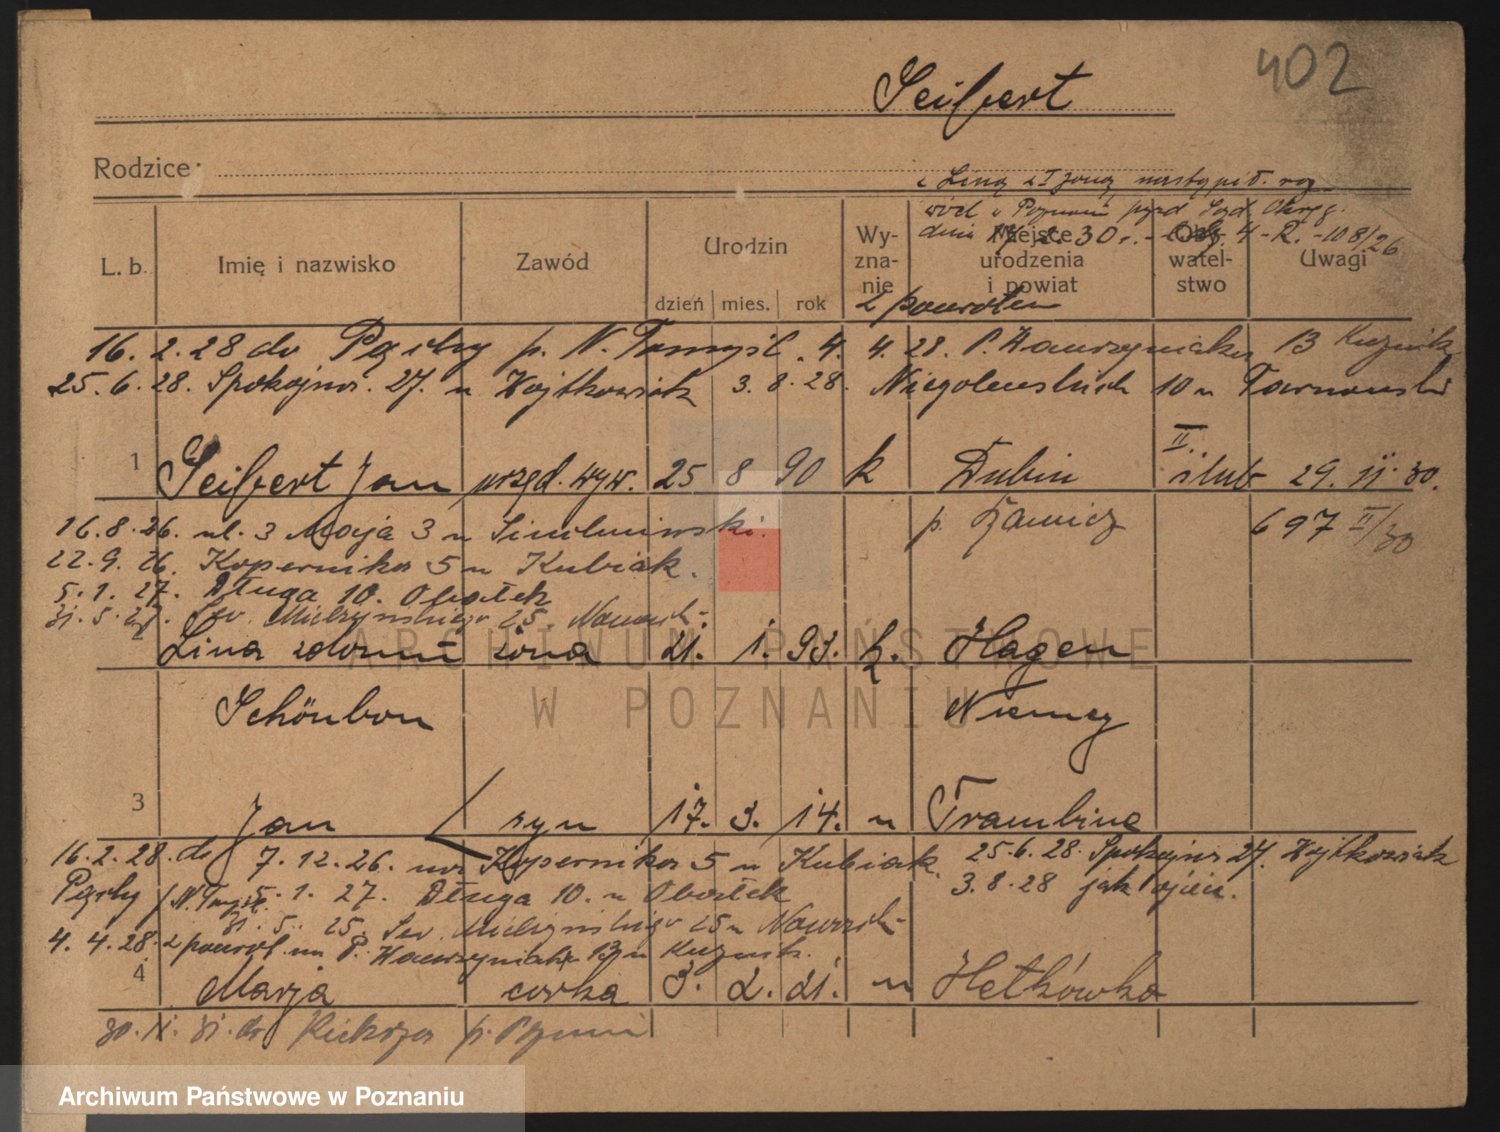 402
Seibert
Rodzice:
z Liną z I żoną nastąpił roz-
wód w Poznaniu przed Sąd Okręg.
dnia 17.2.30 r. 4-R.-108/26
L. b. Imię i nazwisko Zawód Urodzin dzień mies. rok Wy-zna-nie Miejsce urodzenia i powiat Oby-watel-stwo Uwagi
z powrotem
16.2.28 do p. N. Tomyśl. 4. 4. 28. P. Wawrzyniaka 13 Kuźnik
25.6.28. Spokojna. 27. u Wojtkowiak 3.8.28. Niegolewskich 10 u Tarnowski
1 Seibert Jan urzęd. wyw. 25 8 90 k Dubin II. ślub 29.11.30.
p. Rawicz 697 II/30
16.8.26. ul. 3 Maja 3 u
22.9.26. Kopernika 5 u Kubiak.
5.1.27. Długa 10. Obołek
31.5.27. Sew. Mielżyńskiego 25. Nawrock-
Lina z domu żona 21. 1. 93. k. Hagen
Schönborn Niemcy
3 Jan syn 17. 3. 14. n Trambine
16.2.28. do 7.12.26. na Kopernika 5 u Kubiak. 25.6.28. Spokojna 27. Wojtkowiak
p. N. Tomyśl. 5.1.27. Długa 10. u Obołek 3.8.28 jak ojciec.
31.5.25. Sew. Mielżyńskiego 25 u Nawrock-
4.4.28. z powrot. na P. Wawrzyniaka 13 u Kuźnik.
4 Marja córka 3. 2. 21. n
30.XI.31. do Kiekrza p. Poznań
ARCHIWUM PAŃSTWOWE
W POZNANIU
Archiwum Państwowe w Poznaniu